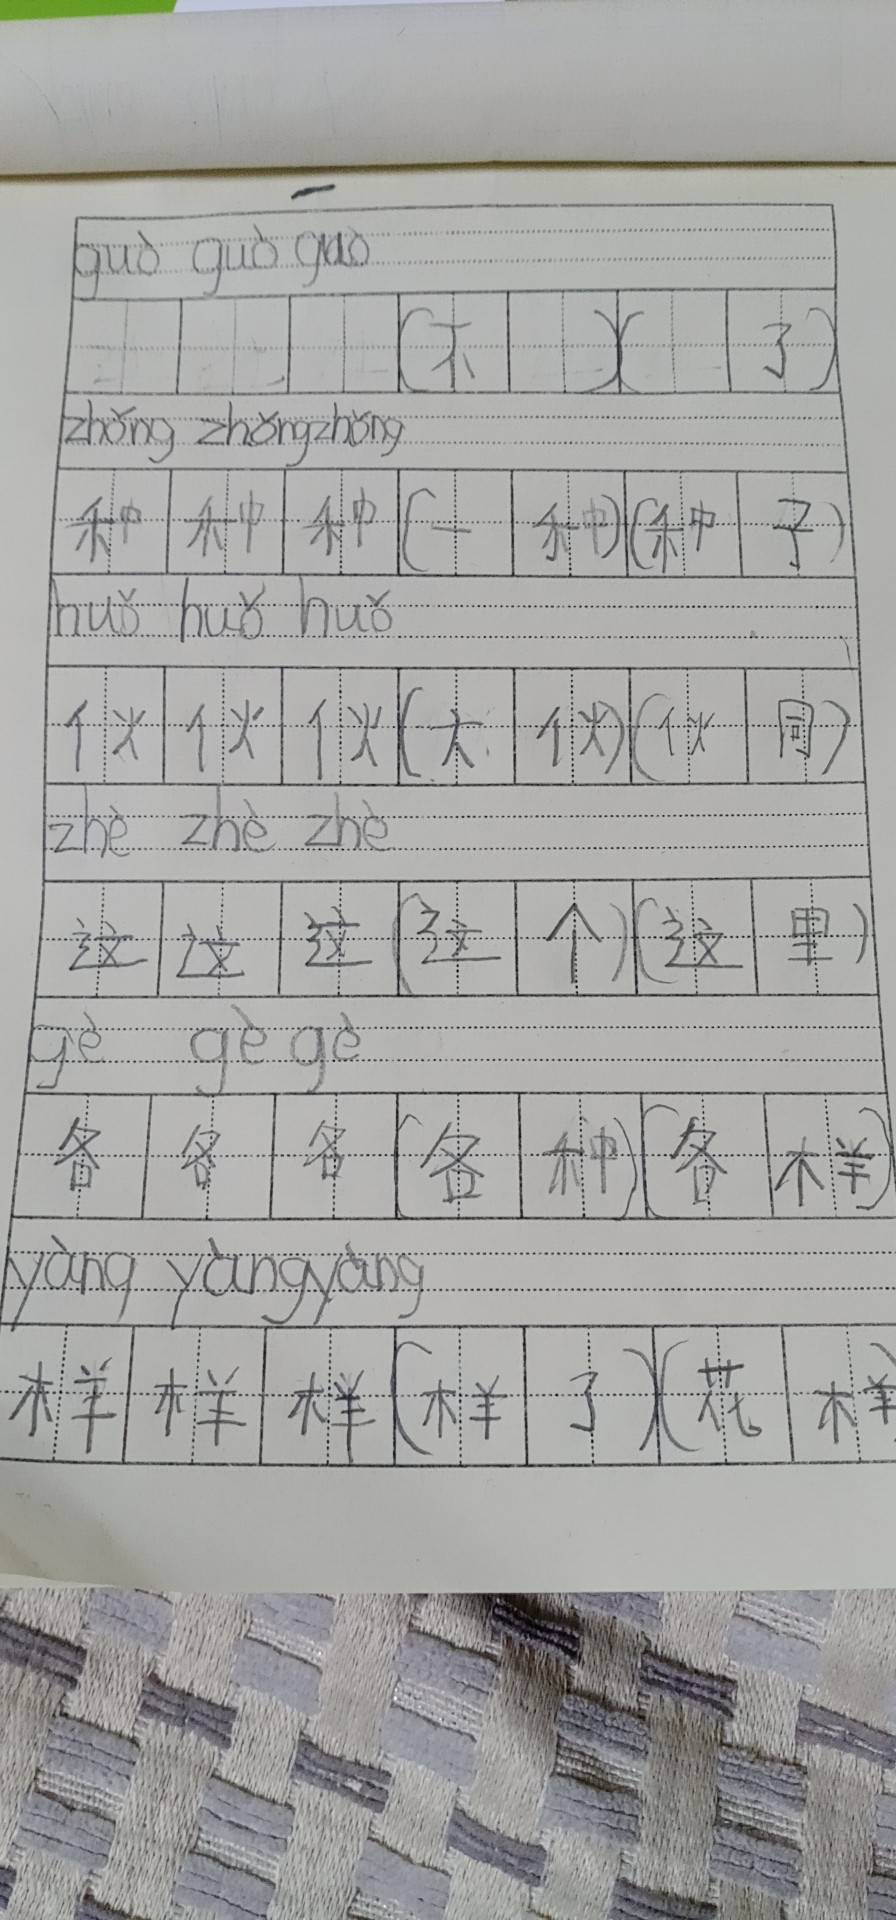 guò guò guò
(不 )( 了)
zhǒng zhǒng zhǒng
种 种 种 (一 种)(种 子)
huǒ huǒ huǒ
伙 伙 伙 (大 伙)(伙 同)
zhè zhè zhè
这 这 这 (这 个)(这 里)
gè gè gè
各 各 各 (各 种)(各 样)
yàng yàng yàng
样 样 样 (样 了)(花 样)